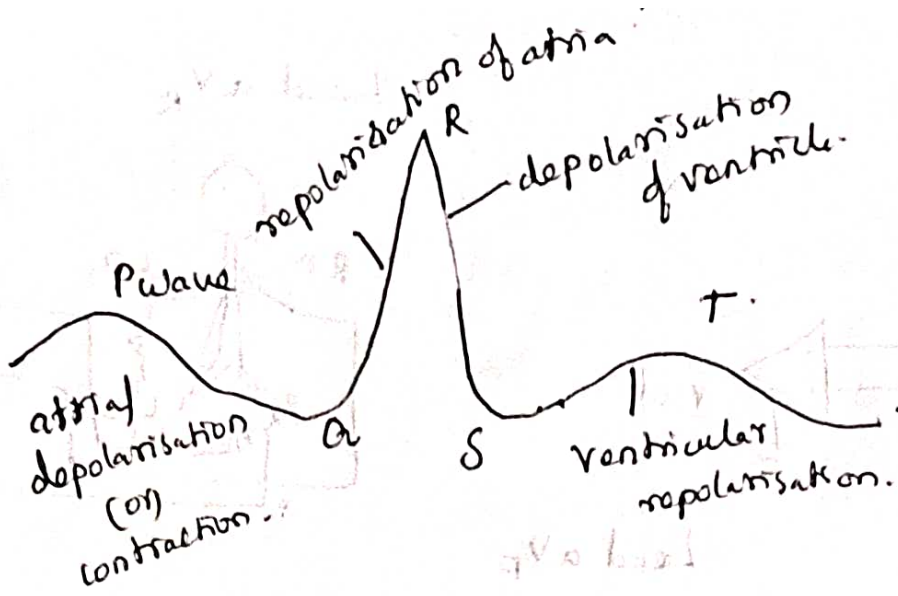 repolarisation of atria
R
depolarisation
of ventricle.
P wave
T.
atrial
depolarisation
(or)
contraction.
Q
S
ventricular
repolarisation.